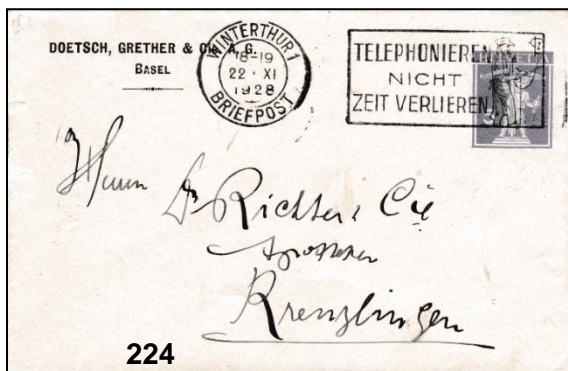 DOETSCH, GRETHER & CIE. A. G.
BASEL
WINTERTHUR 1
18-19
22·XI
1928
BRIEFPOST
TELEPHONIEREN
NICHT
ZEIT VERLIEREN
HELVETIA
Herrn
Richter & Cie
Kreuzlingen
224